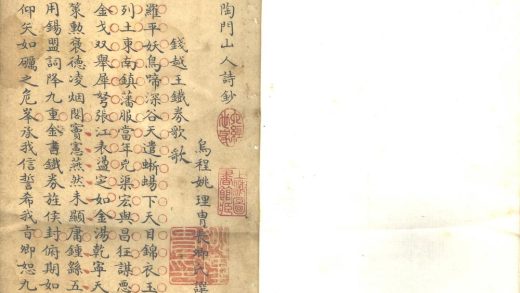 陶門山人詩鈔
烏程姚理胄長卿氏譔
錢越王鐵券歌歌
羅平妖鳥啼深谷天遣蜥蜴下天目錦衣玉
列土東南鎮藩服當年兇渠宏與昌狂謀悪
金戈双舉犀弩張江表盪定如金湯乾寧天
策勳褒德凌烟閣竇憲燕然未顯庸鍾繇五
用錫盟詞降九重金書鐵券旌侯封俯期如
仰矢如礪之危峯承我信誓希我卿恕九